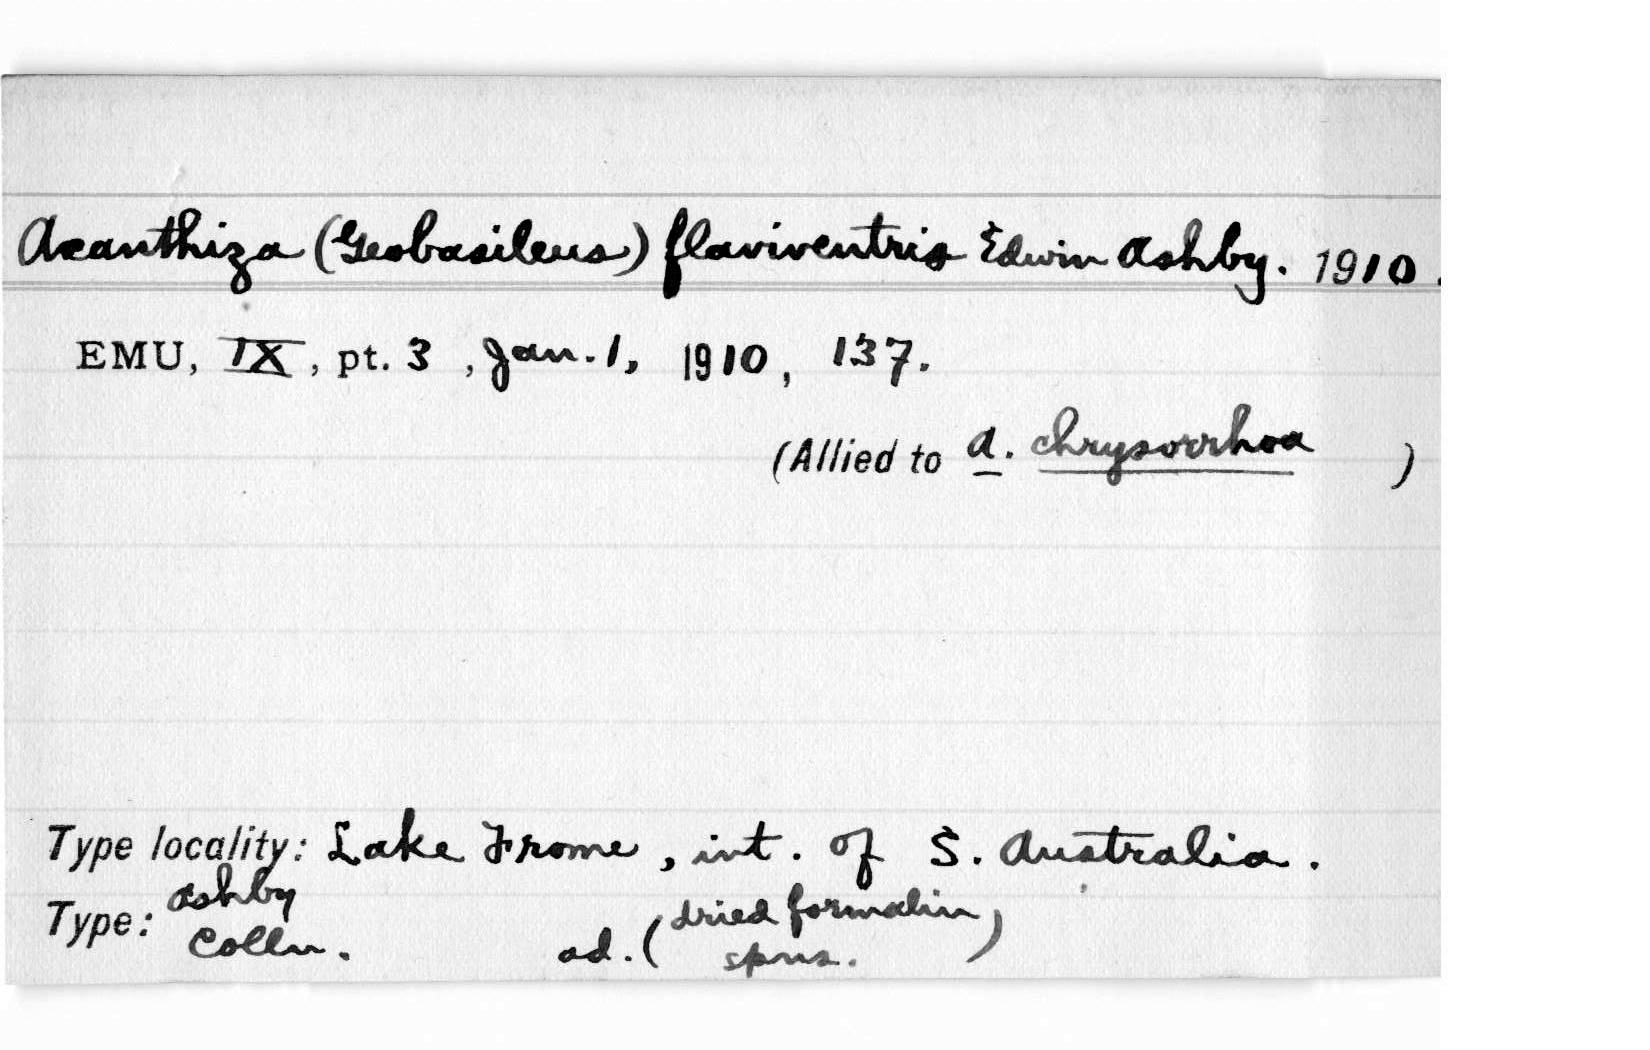 Acanthiza (Geobasileus) flaviventris Edwin Ashby. 1910.
EMU, IX, pt. 3, Jan. 1, 1910, 137.
(Allied to A. chrysorrhoa)
Type locality: Lake Frome, int. of S. Australia.
Type: Ashby Colln. ad. (dried formalin spms.)